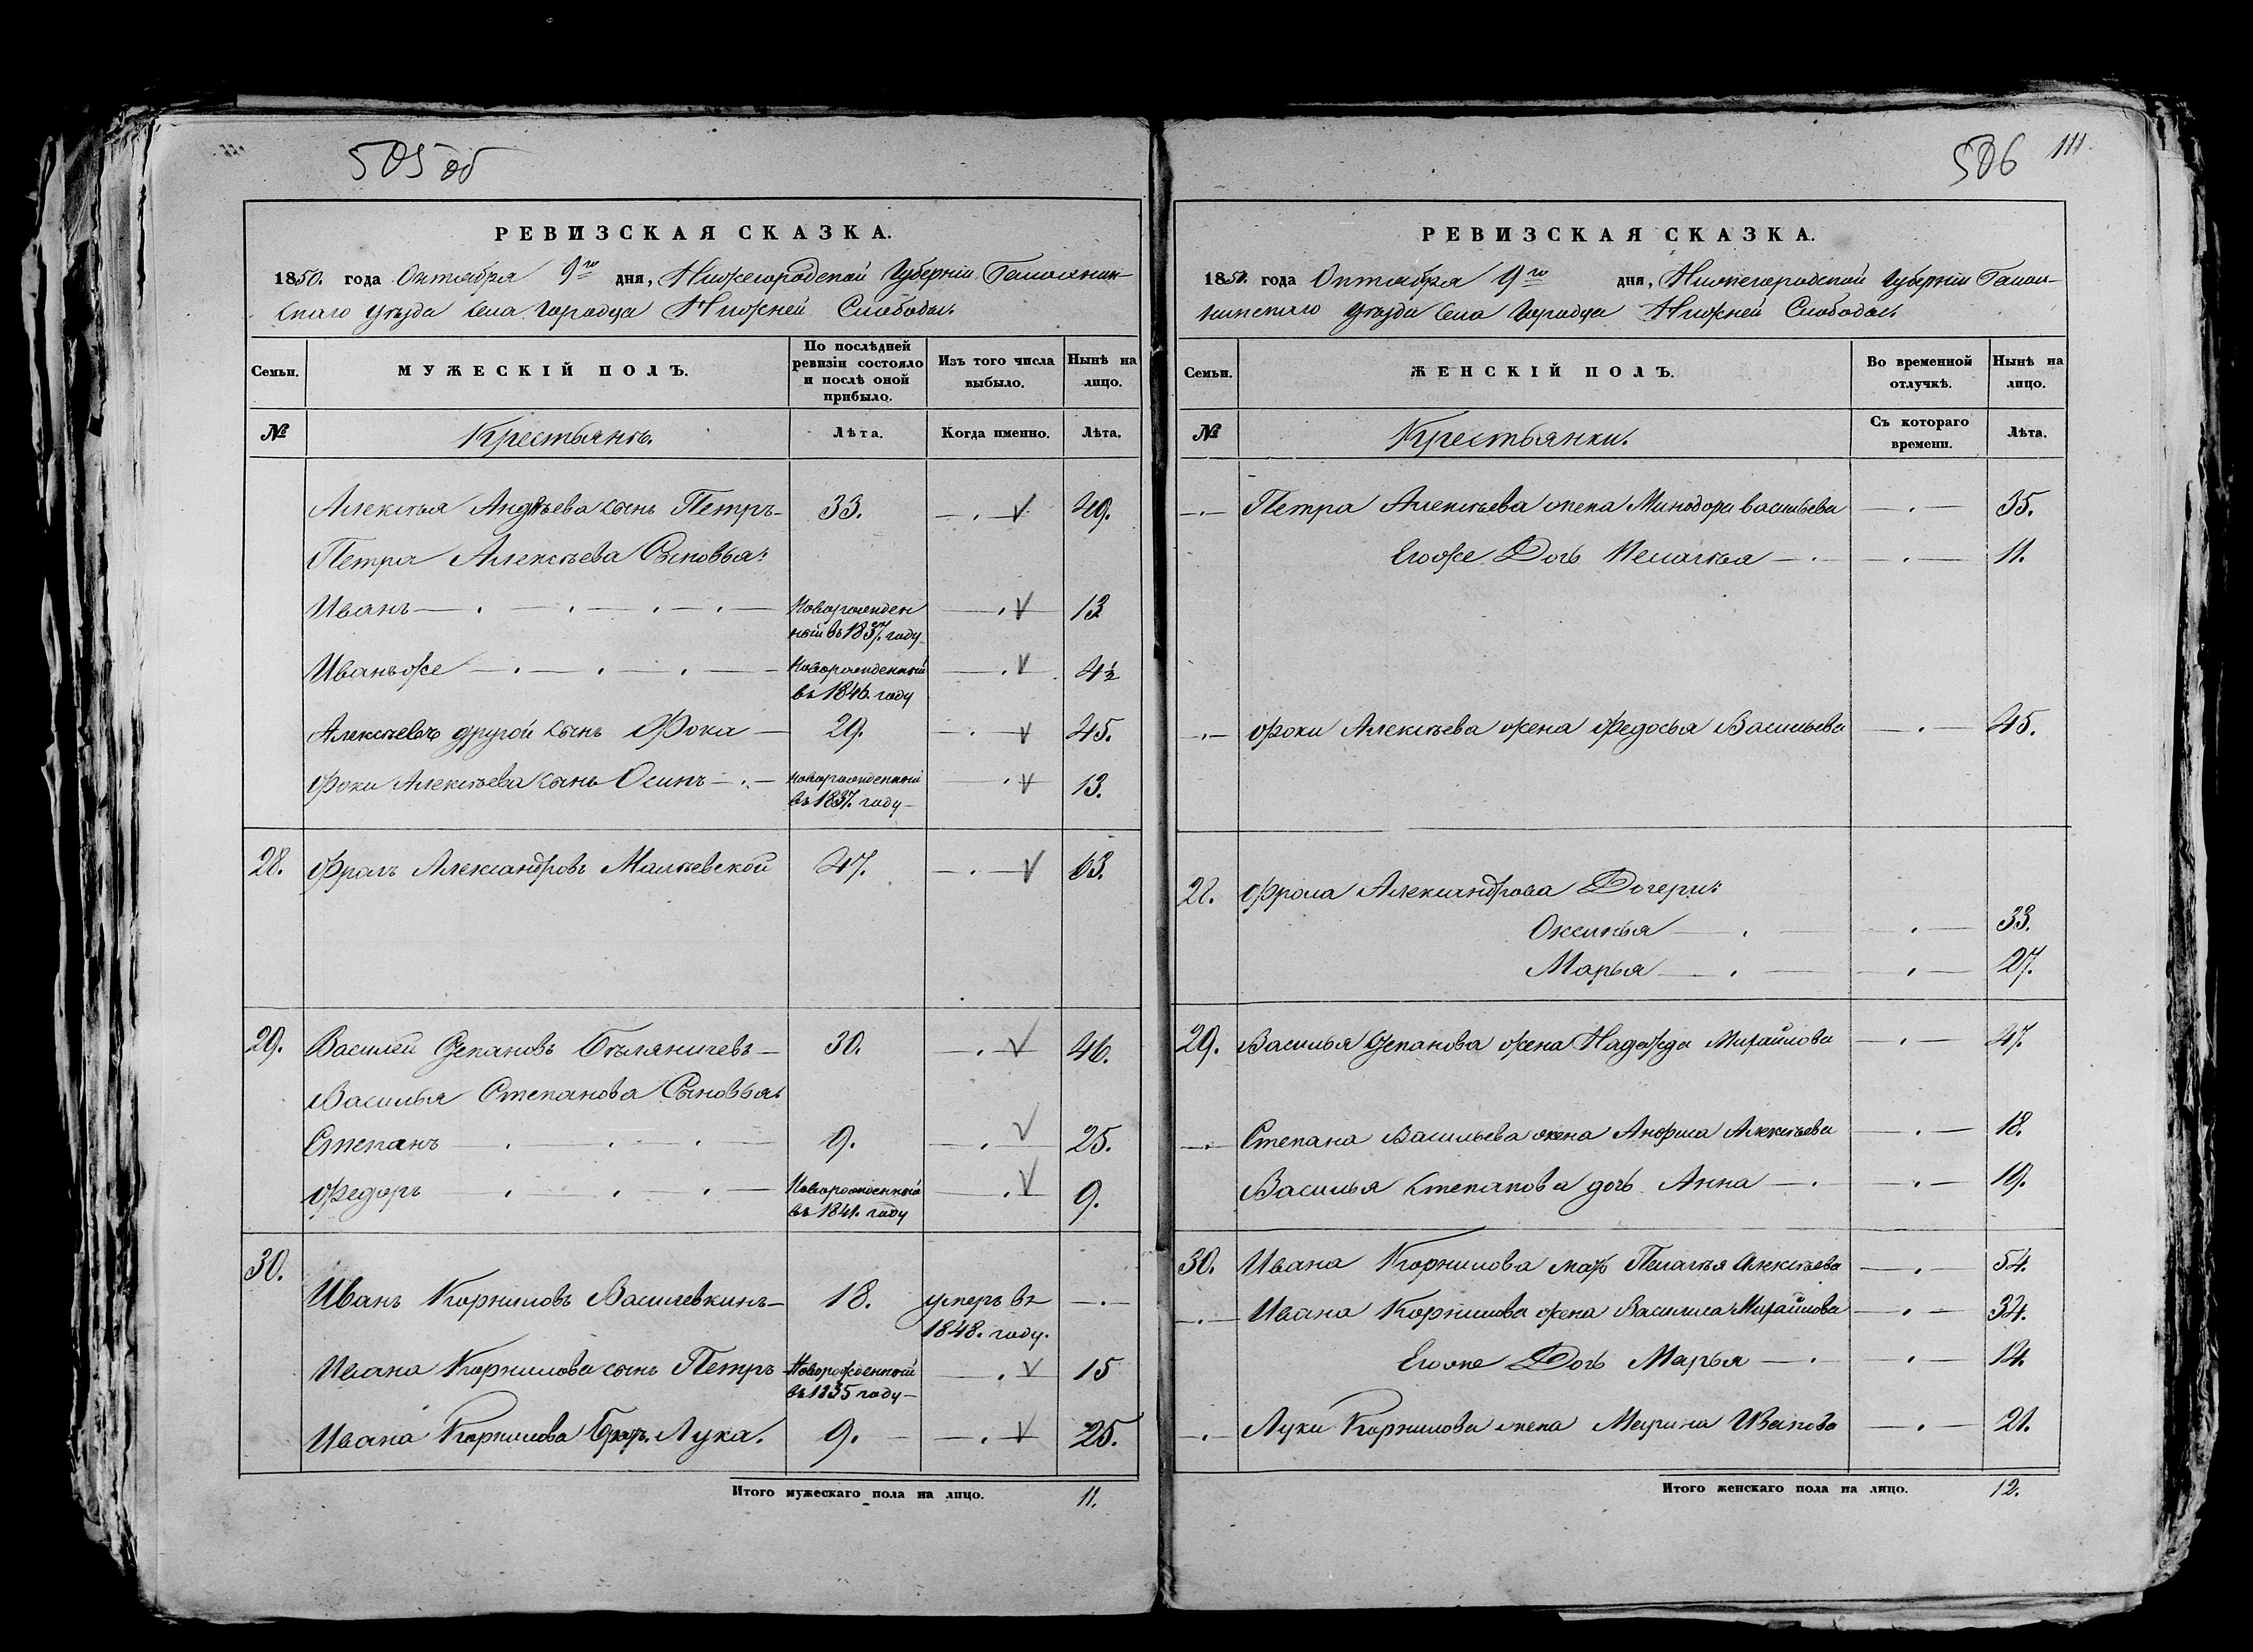 505 об
РЕВИЗСКАЯ СКАЗКА.
1850. года Октября 9го дня, Нижегородской Губерніи
скаго Уѣзда Села Городца Нижней Слободы.
Семьи.
МУЖЕСКІЙ ПОЛЪ.
По послѣдней ревизіи состояло и послѣ оной прибыло.
Изъ того числа выбыло.
Нынѣ на лицо.
№ Крестьянъ. Лѣта. Когда именно. Лѣта.
Алексѣя Андрѣева сынъ Петръ 33. 49.
Петра Алексѣева Сыновья:
Иванъ Новорожден
ный въ 1837. году 13
Иванъ же Новорожденный 4½
въ 1846. году
Алексѣевъ другой сынъ Фока 29. 45.
Фоки Алексѣева сынъ Осипъ Новорожденный 13.
въ 1837. году
28. Фролъ Александровъ 47. 63.
29. Василей Степановъ 30. 46.
Василья Степанова Сыновья:
Степанъ 9. 25.
Федоръ Новорожденный 9.
въ 1841. году
30.
Иванъ Корниловъ Василевкинъ 18. умеръ въ
1848. году.
Ивана Корнилова сынъ Петръ Новорожденный 15
въ 1835 году
Ивана Корнилова братъ Лука. 9. 25.
Итого мужескаго пола на лицо. 11.
506 111.
РЕВИЗСКАЯ СКАЗКА.
1850. года Октября 9го дня, Нижегородской Губерніи
Уѣзда Села Городца Нижней Слободы
Семьи.
ЖЕНСКІЙ ПОЛЪ.
Во временной отлучкѣ.
Нынѣ на лицо.
№ Крестьянки. Съ котораго времени. Лѣта.
Петра Алексѣева жена Минодора Васильева 35.
Его же Дочь Пелагѣя 11.
Фоки Алексѣева жена Федосья Васильева 45.
28. Фрола Александрова Дочери:
Оксинья 33.
Марья 27.
29. Василья Степанова жена Надежда Михайлова 47.
Степана Васильева жена Анфиса Алексѣева 18.
Василья Степанова дочь Анна 19.
30. Ивана Корнилова мать Пелагѣя Алексѣева 54.
Ивана Корнилова жена Василиса Михайлова 34.
Его же Дочь Марья
Луки Корнилова жена Марина Иванова 21.
Итого женскаго пола на лицо. 12.